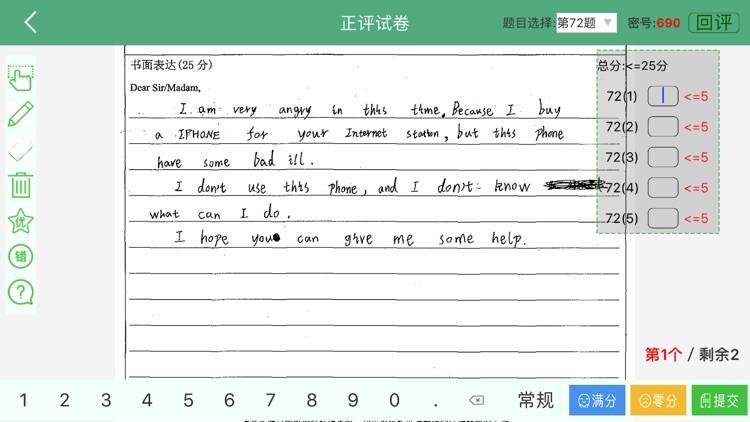 正评试卷
题目选择:第72题 ▼ 密号:690 回评
书面表达(25 分)
总分:<=25分
Dear Sir/Madam,
I am very angry in this time. Because I buy
72(1) <=5
a IPHONE for your Internet station, but this phone
72(2) <=5
have some bad ill.
72(3) <=5
I don't use this phone, and I don't know
72(4) <=5
what can I do.
72(5) <=5
I hope you can give me some help.
优
错
第1个 / 剩余2
1 2 3 4 5 6 7 8 9 0 . 常规 满分 零分 提交